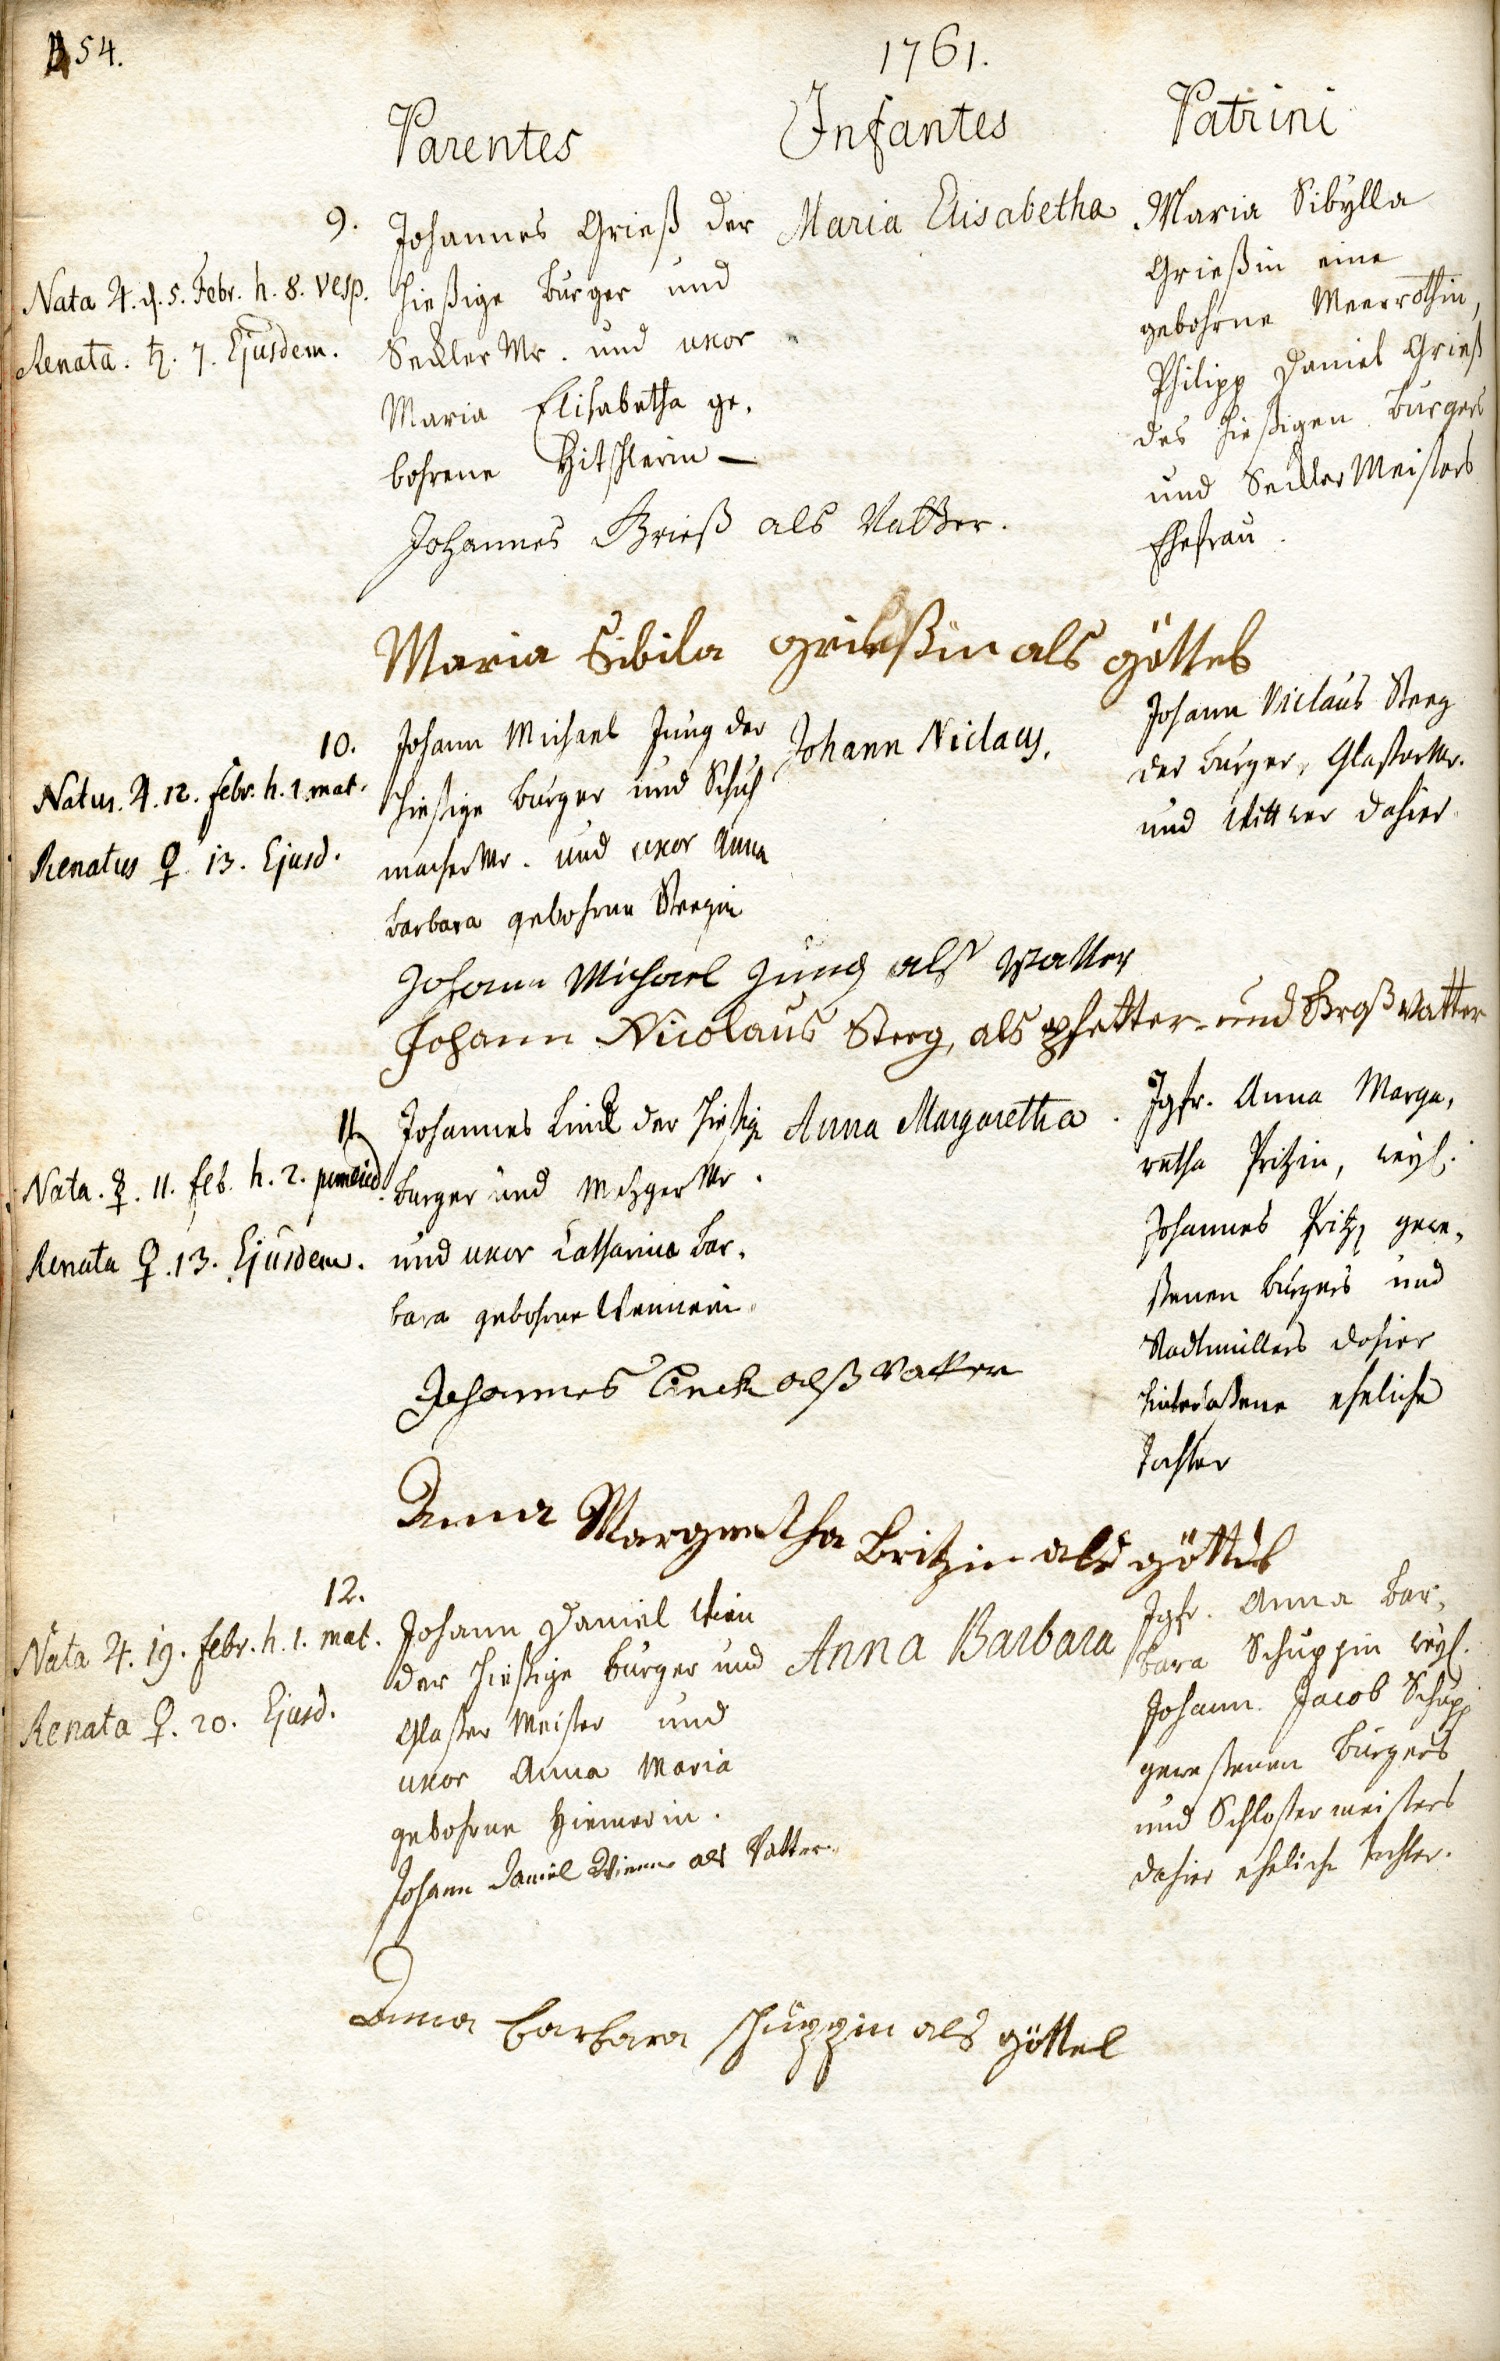 54.
1761.
Parentes Infantes Patrini
9.
Nata ♃. d. 5. Febr. h. 8. vesp.
Renata. ♄. 7. Ejusdem.
Johannes Grieß der
hießige Burger und
Seckler Mr. und uxor
Maria Elisabetha ge,
bohrene Hitschlerin
Maria Elisabetha
Maria Sibylla
Grießin eine
gebohrne Meerrothin,
Philipp Daniel Grieß
des hießigen Burgers
und Seckler Meisters
Ehefrau.
Johannes Grieß als Vatter.
Maria Sibila grießin als göttel
10.
Natus. ♃. 12. febr. h. 1. mat.
Renatus ♀. 13. Ejusd.
Johann Michael Jung der
hießige Burger und Schuh
macher Mr. und uxor Anna
Barbara gebohrne Steegin
Johann Niclaus.
Johann Niclaus Steeg
der Burger, Glaßer Mr.
und Wittwer dahier
Johann Michael Jung als Vatter
Johann Nicolaus Steeg, als pfetter und Großvatter
11.
Nata. ☿. 11. feb. h. 2. pomerid.
Renata ♀. 13. Ejusdem.
Johannes Linck der hießige
Burger und Metzger Mr.
und uxor Catharina Bar,
bara gebohrne
Anna Margaretha.
Jgfr. Anna Marga,
retha Pritzin, weyl.
Johannes Pritz gewe,
ßenen Burgers und
dahier
hinterlaßene eheliche
Tochter
Johannes Linck alß Vatter
Anna Margretha Britzin als göttel
12.
Nata ♃. 19. febr. h. 1. mat.
Renata ♀. 20. Ejusd.
Johann Daniel Wien
der hießige Burger und
Glaßer Meister und
uxor Anna Maria
gebohrne Hiemerin.
Anna Barbara
Jgfr. Anna Bar,
bara Schuppin weyl.
Johann Jacob Schupp
geweßenen Burgers
und Schloßermeisters
dahier eheliche Tochter.
Johann Daniel Wienn als Vatter
Anna Barbara schuppin als göttel